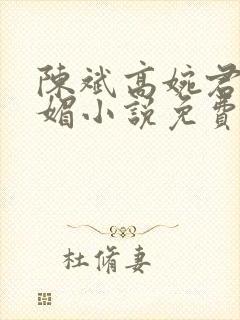 陳斌高婉君
媚小說免費
杜脩妻